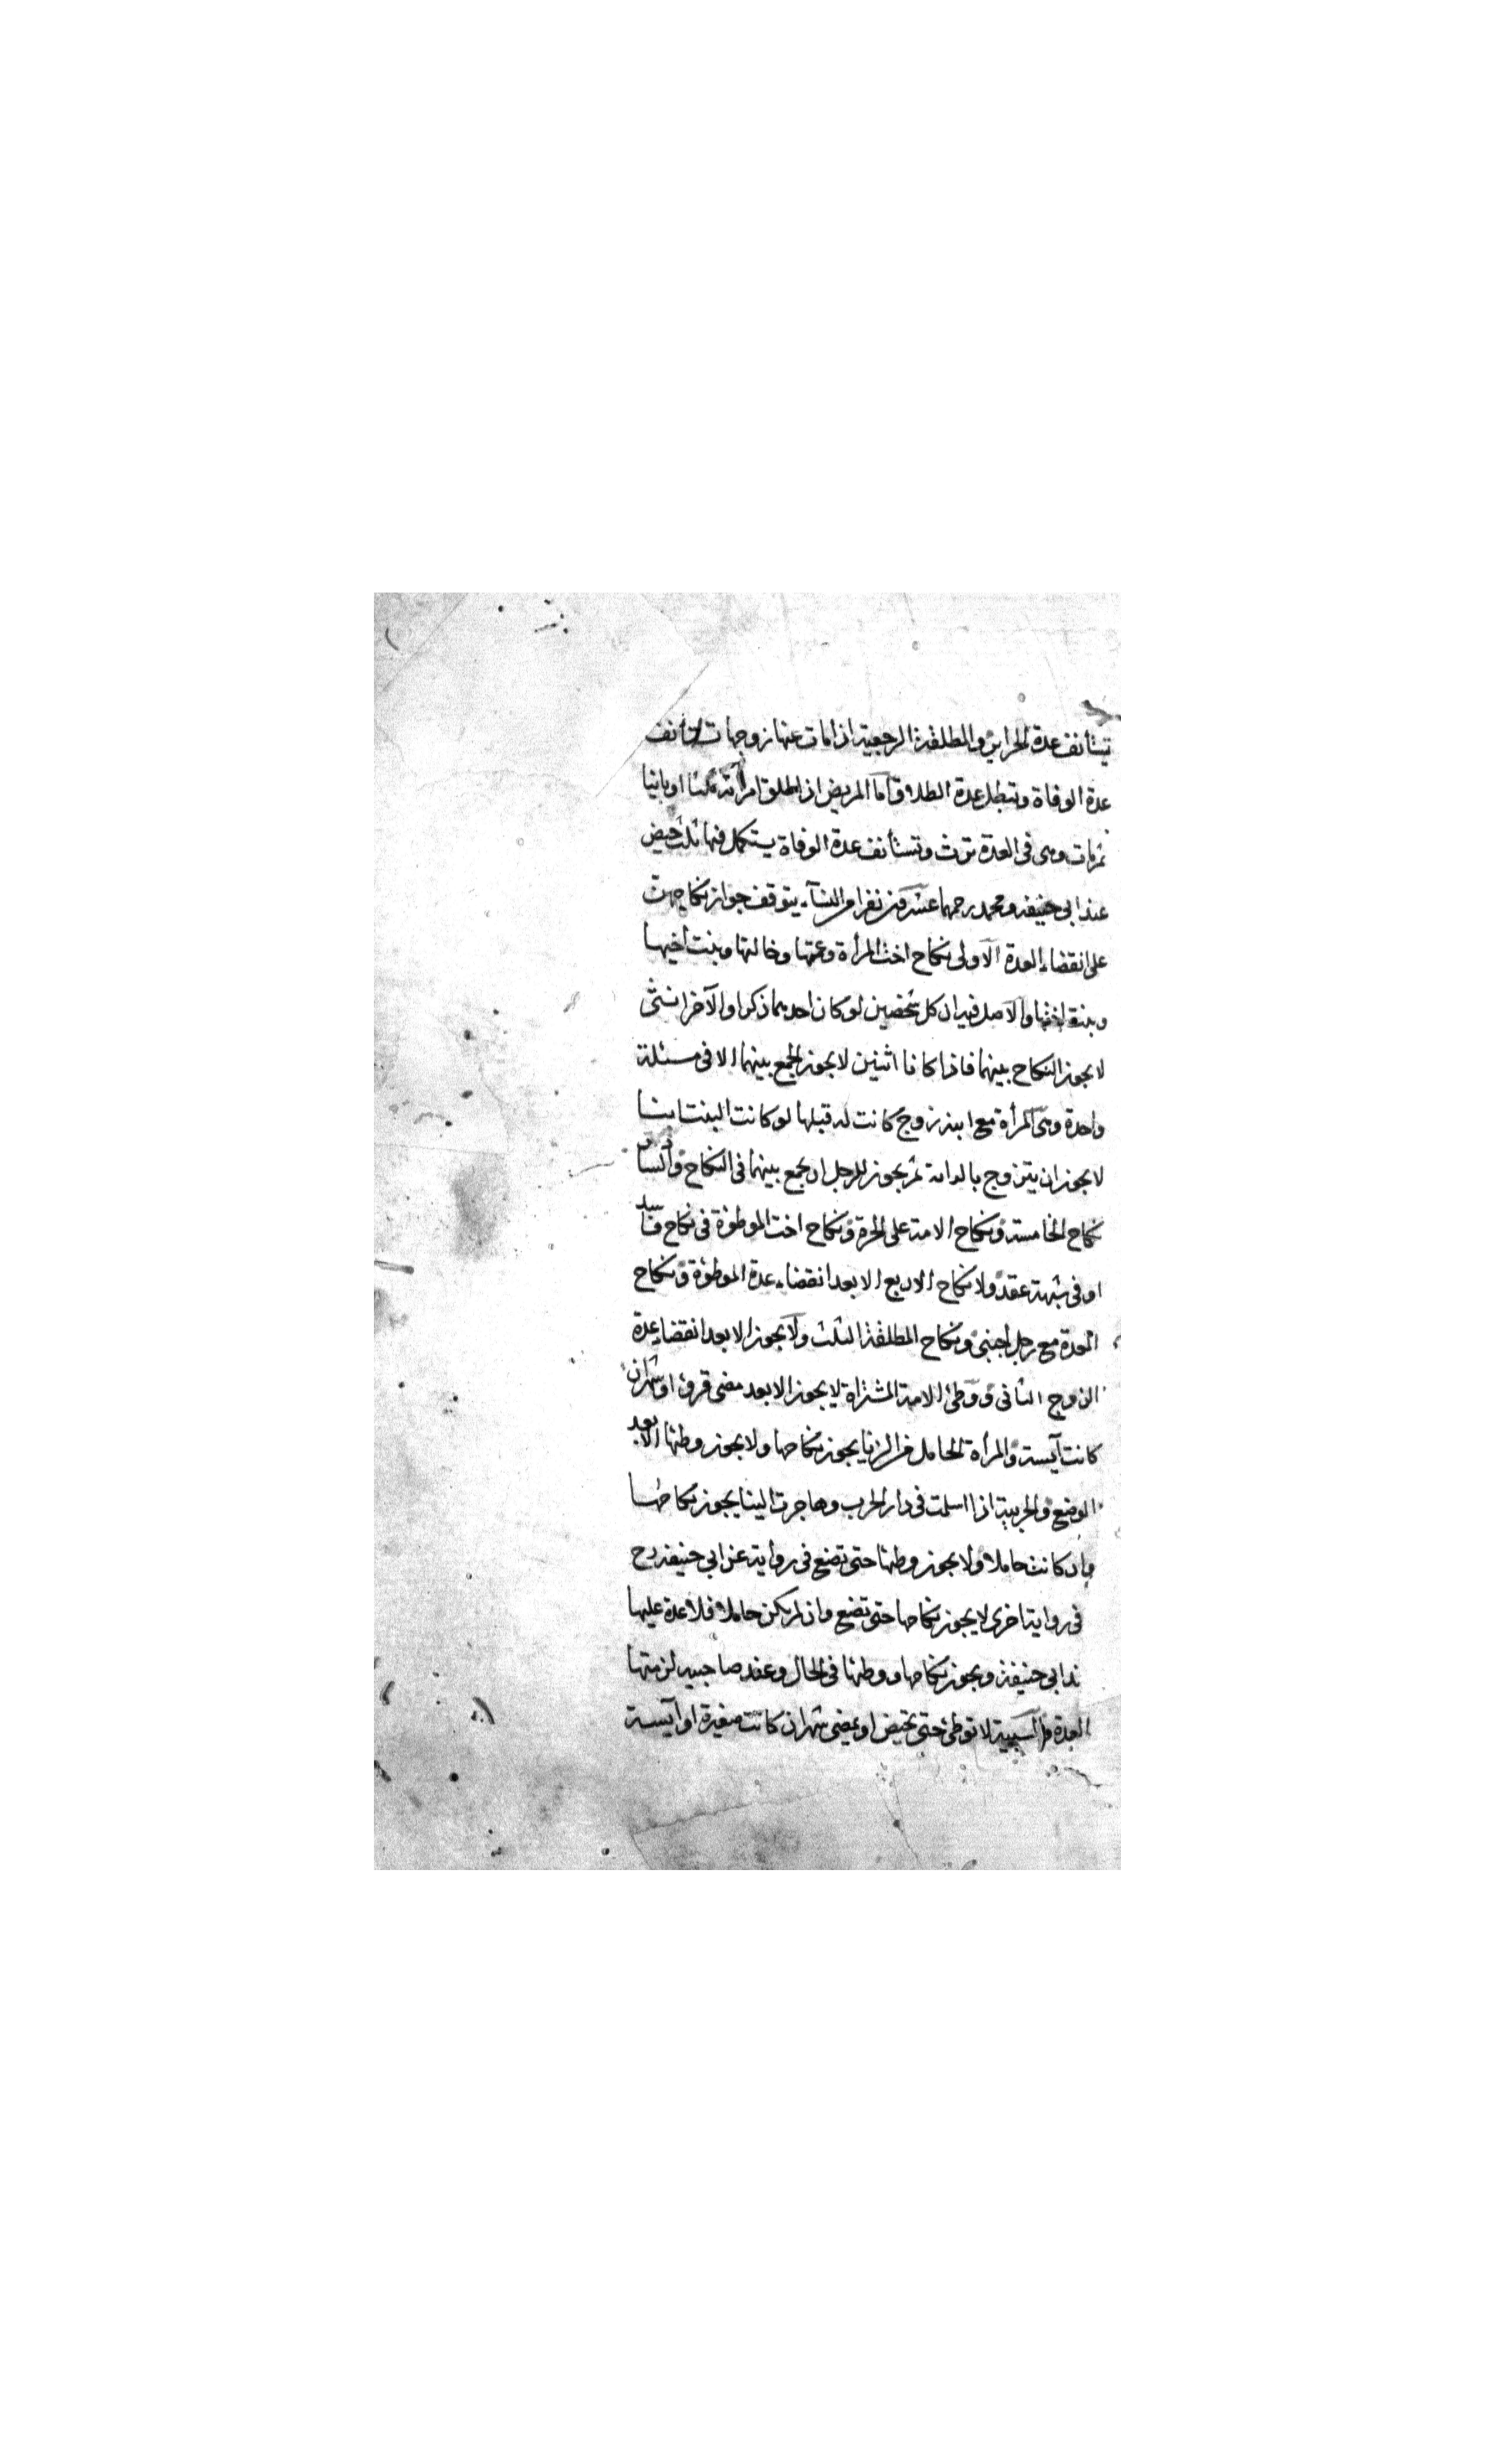 تستأنف عدة الحراير والمطلقة الرجعية اذا مات عنها زوجها تستأنف
عدة الوفاة وتبطل عدة الطلاق واما المريض اذا طلق امرأته ثلثا او بانيا
ثم مات وهى فى العدة ترث وتستأنف عدة الوفاة يستكمل فيها ثلث حيض
عند ابى حنيفة ومحمد رحمهما عشر نفرا من النسآء يتوقف جواز نكاحهن
على انقضاء العدة الاولى نكاح اخت المرأة وعمتها وخالتها وبنت اخيها
وبنت اختها والاصل فيه ان كل شخصين لو كان احدهما ذكرا والآخر انثى
لا يجوز النكاح بينهما فاذا كانا اثنين لا يجوز الجمع بينهما الا فى مسئلة
واحدة وهى المرأة مع ابنة زوج كانت له قبلها لو كانت البنت ابنا
لا يجوز ان يتزوج بالدامة ثم يجوز للرجل ان يجمع بينهما فى النكاح
نكاح الخامسة ونكاح الامة على الحرة ونكاح اخت الموطؤة فى نكاح فاسد
او فى شبهة عقد ولا نكاح الاربع الا بعد انقضاء عدة الموطؤة ونكاح
العدة مع رجل اجنبى ونكاح المطلقة الثلث ولا يجوز الا بعد انقضاء عدة
الزوج الثانى ووطئ الامة المشتراة لا يجوز الا بعد مضى قروء او شهر ان
كانت آيسة والمرأة الحامل من الزنا يجوز نكاحها ولا يجوز وطئها الا بعد
الوضع والحربية اذا اسلمت فى دار الحرب وهاجرت الينا يجوز نكاحها
وان كانت حاملا ولا يجوز وطئها حتى تضع فى رواية عن ابي حنيفة رح
فى رواية اخرى لا يجوز نكاحها حتى تضع وان لم يكن حاملا فلا عدة عليها
ند ابى حنيفة ويجوز نكاحها ووطئها فى الحال وعند صاحبيه لزمتها
العدة والسبية لا توطئ حتى تحيض او يمضى شهر ان كانت صغيرة او آيسة